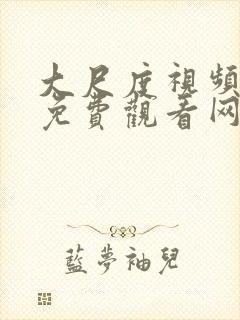 大尺度視頻
免費觀看网
藍夢袖兒